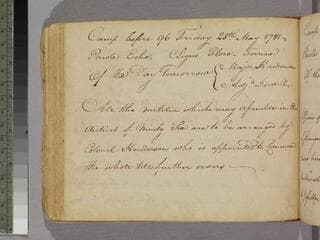 Camp before 96 Friday 25th May 1781
Parole Echo, C Signs Flora,
Of the Day Tomorrow { Major
Adjt
All the militia which may assemble in the
district of Ninety Six are to be arranged by
Colonel Henderson who is appointed to Command
the whole till further orders